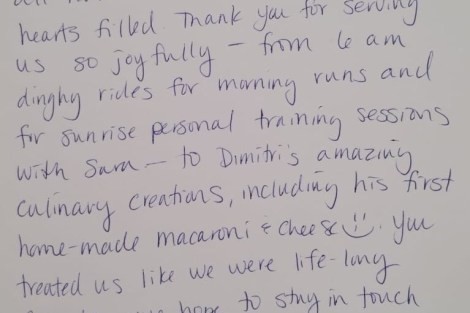 hearts filled. Thank you for serving
us so joyfully – from 6 am
dinghy rides for morning runs and
for sunrise personal training sessions
with Sara – to Dimitri's amazing
culinary creations, including his first
home-made macaroni & cheese :). You
treated us like we were life-long
hope to stay in touch